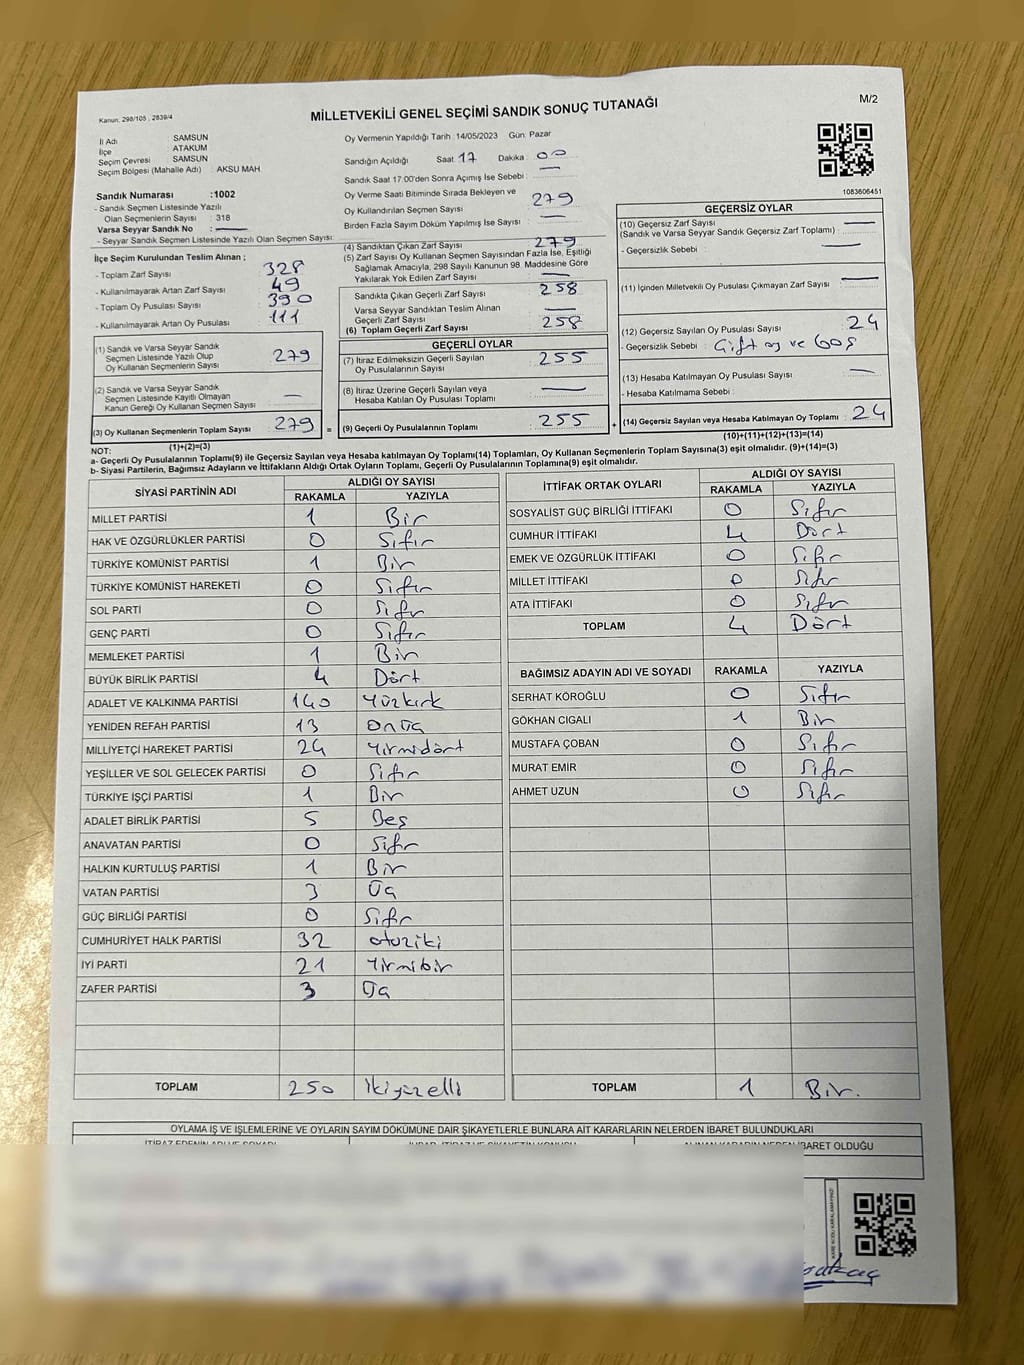 Kanun, 298/105 , 2839/4
MİLLETVEKİLİ GENEL SEÇİMİ SANDIK SONUÇ TUTANAĞI
M/2
İl Adı SAMSUN
İlçe ATAKUM
Seçim Çevresi SAMSUN
Seçim Bölgesi (Mahalle Adı) : AKSU MAH
Sandık Numarası :1002
- Sandık Seçmen Listesinde Yazılı
Olan Seçmenlerin Sayısı : 318
Varsa Seyyar Sandık No : —
- Seyyar Sandık Seçmen Listesinde Yazılı Olan Seçmen Sayısı:
İlçe Seçim Kurulundan Teslim Alınan ;
- Toplam Zarf Sayısı : 328
- Kullanılmayarak Artan Zarf Sayısı : 49
- Toplam Oy Pusulası Sayısı : 390
- Kullanılmayarak Artan Oy Pusulası : 111
(1) Sandık ve Varsa Seyyar Sandık
Seçmen Listesinde Yazılı Olup
Oy Kullanan Seçmenlerin Sayısı : 279
(2) Sandık ve Varsa Seyyar Sandık
Seçmen Listesinde Kayıtlı Olmayan
Kanun Gereği Oy Kullanan Seçmen Sayısı : —
(3) Oy Kullanan Seçmenlerin Toplam Sayısı : 279 =
(1)+(2)=(3)
Oy Vermenin Yapıldığı Tarih :14/05/2023 Gün: Pazar
Sandığın Açıldığı Saat: 17 Dakika : 00
Sandık Saat 17.00'den Sonra Açımış İse Sebebi : —
Oy Verme Saati Bitiminde Sırada Bekleyen ve
Oy Kullandırılan Seçmen Sayısı : 279
Birden Fazla Sayım Döküm Yapılmış İse Sayısı : —
(4) Sandıktan Çıkan Zarf Sayısı : 279
(5) Zarf Sayısı Oy Kullanan Seçmen Sayısından Fazla İse, Eşitliği
Sağlamak Amacıyla, 298 Sayılı Kanunun 98. Maddesine Göre
Yakılarak Yok Edilen Zarf Sayısı : —
Sandıkta Çıkan Geçerli Zarf Sayısı : 258
Varsa Seyyar Sandıktan Teslim Alınan
Geçerli Zarf Sayısı : —
(6) Toplam Geçerli Zarf Sayısı : 258
GEÇERLİ OYLAR
(7) İtiraz Edilmeksizin Geçerli Sayılan
Oy Pusulalarının Sayısı : 255
(8) İtiraz Üzerine Geçerli Sayılan veya
Hesaba Katılan Oy Pusulası Toplamı : —
(9) Geçerli Oy Pusulalarının Toplamı : 255 +
1083606451
GEÇERSİZ OYLAR
(10) Geçersiz Zarf Sayısı : —
(Sandık ve Varsa Seyyar Sandık Geçersiz Zarf Toplamı)
- Geçersizlik Sebebi : —
(11) İçinden Milletvekili Oy Pusulası Çıkmayan Zarf Sayısı : —
(12) Geçersiz Sayılan Oy Pusulası Sayısı : 24
- Geçersizlik Sebebi : Çift oy ve boş
(13) Hesaba Katılmayan Oy Pusulası Sayısı : —
- Hesaba Katılmama Sebebi :
(14) Geçersiz Sayılan veya Hesaba Katılmayan Oy Toplamı : 24
(10)+(11)+(12)+(13)=(14)
NOT:
a- Geçerli Oy Pusulalarının Toplamı(9) ile Geçersiz Sayılan veya Hesaba katılmayan Oy Toplamı(14) Toplamları, Oy Kullanan Seçmenlerin Toplam Sayısına(3) eşit olmalıdır. (9)+(14)=(3)
b- Siyasi Partilerin, Bağımsız Adayların ve İttifakların Aldığı Ortak Oyların Toplamı, Geçerli Oy Pusulalarının Toplamına(9) eşit olmalıdır.
SİYASİ PARTİNİN ADI ALDIĞI OY SAYISI
RAKAMLA YAZIYLA
MİLLET PARTİSİ 1 Bir
HAK VE ÖZGÜRLÜKLER PARTİSİ 0 Sıfır
TÜRKİYE KOMÜNİST PARTİSİ 1 Bir
TÜRKİYE KOMÜNİST HAREKETİ 0 Sıfır
SOL PARTİ 0 Sıfır
GENÇ PARTİ 0 Sıfır
MEMLEKET PARTİSİ 1 Bir
BÜYÜK BİRLİK PARTİSİ 4 Dört
ADALET VE KALKINMA PARTİSİ 140 Yüzkırk
YENİDEN REFAH PARTİSİ 13 Onüç
MİLLİYETÇİ HAREKET PARTİSİ 24 Yirmidört
YEŞİLLER VE SOL GELECEK PARTİSİ 0 Sıfır
TÜRKİYE İŞÇİ PARTİSİ 1 Bir
ADALET BİRLİK PARTİSİ 5 Beş
ANAVATAN PARTİSİ 0 Sıfır
HALKIN KURTULUŞ PARTİSİ 1 Bir
VATAN PARTİSİ 3 Üç
GÜÇ BİRLİĞİ PARTİSİ 0 Sıfır
CUMHURİYET HALK PARTİSİ 32 otuziki
İYİ PARTİ 21 Yirmibir
ZAFER PARTİSİ 3 Üç
TOPLAM 250 İkiyüzelli
İTTİFAK ORTAK OYLARI ALDIĞI OY SAYISI
RAKAMLA YAZIYLA
SOSYALİST GÜÇ BİRLİĞİ İTTİFAKI 0 Sıfır
CUMHUR İTTİFAKI 4 Dört
EMEK VE ÖZGÜRLÜK İTTİFAKI 0 Sıfır
MİLLET İTTİFAKI 0 Sıfır
ATA İTTİFAKI 0 Sıfır
TOPLAM 4 Dört
BAĞIMSIZ ADAYIN ADI VE SOYADI RAKAMLA YAZIYLA
SERHAT KÖROĞLU 0 Sıfır
GÖKHAN CIGALI 1 Bir
MUSTAFA ÇOBAN 0 Sıfır
MURAT EMİR 0 Sıfır
AHMET UZUN 0 Sıfır
TOPLAM 1 Bir.
OYLAMA İŞ VE İŞLEMLERİNE VE OYLARIN SAYIM DÖKÜMÜNE DAİR ŞİKAYETLERLE BUNLARA AİT KARARLARIN NELERDEN İBARET BULUNDUKLARI
İBARET OLDUĞU
KARE KODU KARALAMAYINIZ!